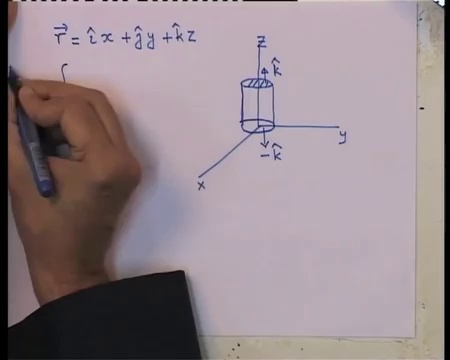 r⃗ = îx + ĵy + k̂z
∫
z
k̂
y
-k̂
x